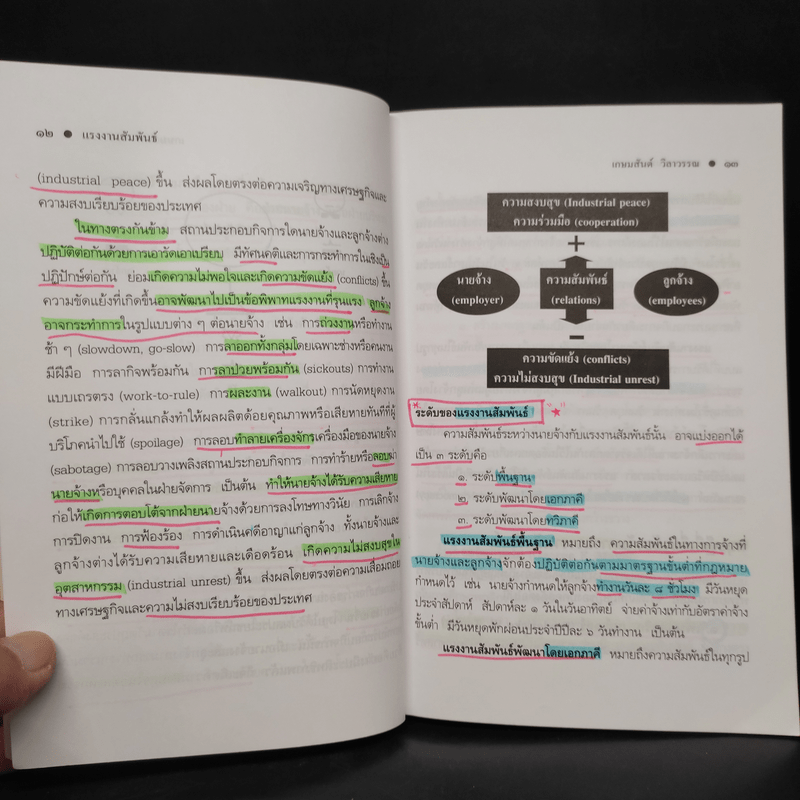 ๑๒ ● แรงงานสัมพันธ์
(industrial peace) ขึ้น ส่งผลโดยตรงต่อความเจริญทางเศรษฐกิจและ
ความสงบเรียบร้อยของประเทศ
ในทางตรงกันข้าม สถานประกอบกิจการใดนายจ้างและลูกจ้างต่าง
ปฏิบัติต่อกันด้วยการเอารัดเอาเปรียบ มีทัศนคติและการกระทำการในเชิงเป็น
ปฏิปักษ์ต่อกัน ย่อมเกิดความไม่พอใจและเกิดความขัดแย้ง (conflicts) ขึ้น
ความขัดแย้งที่เกิดขึ้นอาจพัฒนาไปเป็นข้อพิพาทแรงงานที่รุนแรง ลูกจ้าง
อาจกระทำการในรูปแบบต่าง ๆ ต่อนายจ้าง เช่น การถ่วงงานหรือทำงาน
ช้า ๆ (slowdown, go-slow) การลาออกทั้งกลุ่มโดยเฉพาะช่างหรือคนงาน
มีฝีมือ การลากิจพร้อมกัน การลาป่วยพร้อมกัน (sickouts) การทำงาน
แบบเถรตรง (work-to-rule) การผละงาน (walkout) การนัดหยุดงาน
(strike) การกลั่นแกล้งทำให้ผลผลิตด้อยคุณภาพหรือเสียหายทันทีที่ผู้
บริโภคนำไปใช้ (spoilage) การลอบทำลายเครื่องจักรเครื่องมือของนายจ้าง
(sabotage) การลอบวางเพลิงสถานประกอบกิจการ การทำร้ายหรือลอบฆ่า
นายจ้างหรือบุคคลในฝ่ายจัดการ เป็นต้น ทำให้นายจ้างได้รับความเสียหาย
ก่อให้เกิดการตอบโต้จากฝ่ายนายจ้างด้วยการลงโทษทางวินัย การเลิกจ้าง
การปิดงาน การฟ้องร้อง การดำเนินคดีอาญาแก่ลูกจ้าง ทั้งนายจ้างและ
ลูกจ้างต่างได้รับความเสียหายและเดือดร้อน เกิดความไม่สงบสุขใน
อุตสาหกรรม (industrial unrest) ขึ้น ส่งผลโดยตรงต่อความเสื่อมถอย
ทางเศรษฐกิจและความไม่สงบเรียบร้อยของประเทศ
เกษมสันต์ วิลาวรรณ ● ๑๓
ความสงบสุข (Industrial peace)
ความร่วมมือ (cooperation)
+
นายจ้าง
(employer)
ความสัมพันธ์
(relations)
ลูกจ้าง
(employees)
−
ความขัดแย้ง (conflicts)
ความไม่สงบสุข (Industrial unrest)
ระดับของแรงงานสัมพันธ์
ความสัมพันธ์ระหว่างนายจ้างกับแรงงานสัมพันธ์นั้น อาจแบ่งออกได้
เป็น ๓ ระดับคือ
๑. ระดับพื้นฐาน
๒. ระดับพัฒนาโดยเอกภาคี
๓. ระดับพัฒนาโดยทวิภาคี
แรงงานสัมพันธ์พื้นฐาน หมายถึง ความสัมพันธ์ในทางการจ้างที่
นายจ้างและลูกจ้างจักต้องปฏิบัติต่อกันตามมาตรฐานขั้นต่ำที่กฎหมาย
กำหนดไว้ เช่น นายจ้างกำหนดให้ลูกจ้างทำงานวันละ ๘ ชั่วโมง มีวันหยุด
ประจำสัปดาห์ สัปดาห์ละ ๑ วันในวันอาทิตย์ จ่ายค่าจ้างเท่ากับอัตราค่าจ้าง
ขั้นต่ำ มีวันหยุดพักผ่อนประจำปีปีละ ๖ วันทำงาน เป็นต้น
แรงงานสัมพันธ์พัฒนาโดยเอกภาคี หมายถึงความสัมพันธ์ในทุกรูป